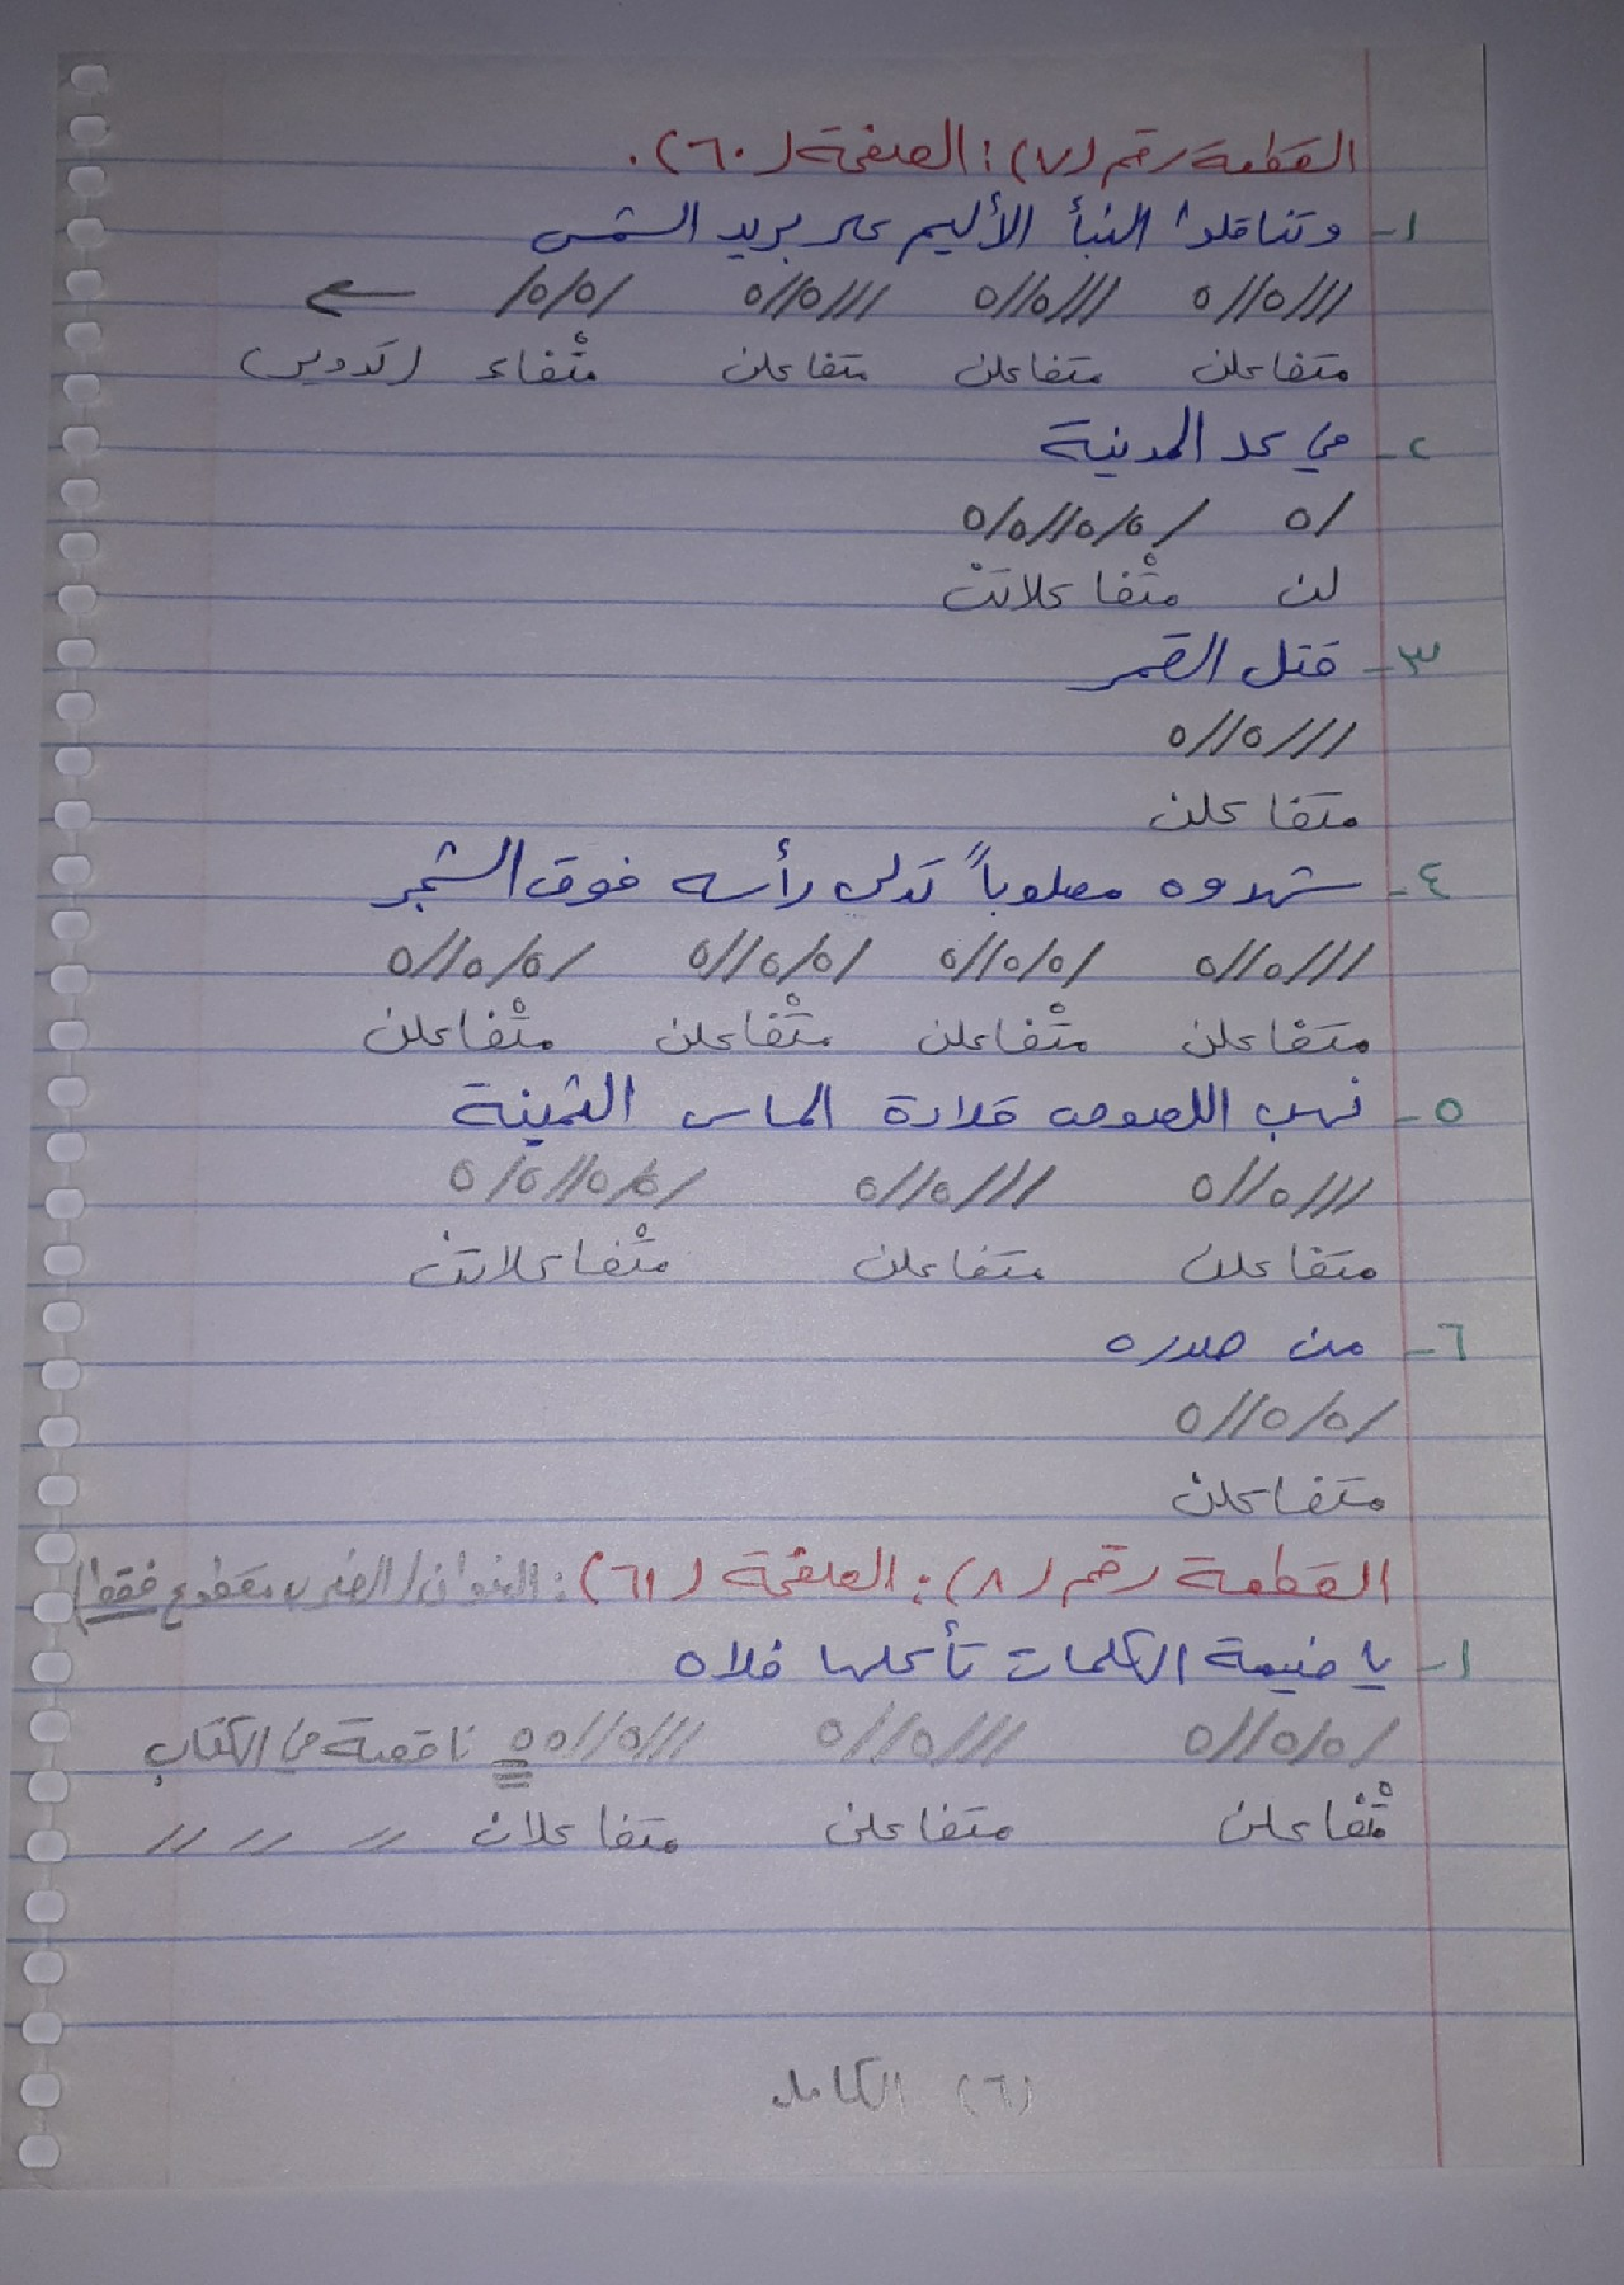 القطعة رقم (٧) : الصفحة (٦٠).
١- وتناقلوا النبأ الأليم على بريد الشمس
///٥//٥ ///٥//٥ ///٥//٥ /٥/٥/ ←
متفاعلن متفاعلن متفاعلن متْفاعـ (تدوير)
٢- في كل المدينة
/٥ /٥/٥//٥/٥
لن متْفاعلاتن
٣- قتل القمر
///٥//٥
متفاعلن
٤- شهدوه مصلوباً تدلى رأسه فوق الشجر
///٥//٥ /٥/٥//٥ /٥/٥//٥ /٥/٥//٥
متفاعلن متْفاعلن متْفاعلن متْفاعلن
٥- نهب اللصوص قلادة الماس الثمينة
///٥//٥ ///٥//٥ /٥/٥//٥/٥
متفاعلن متفاعلن متْفاعلاتن
٦- من صدره
/٥/٥//٥
متفاعلن
القطعة رقم (٨) : الصفحة (٦١) : العنوان (الضرب مقطوع فقط)
١- يا ضيعة الكلمات تأكلها فلاه
/٥/٥//٥ ///٥//٥ ///٥//٥٥ ناقصة في الكتاب
متْفاعلن متفاعلن متفاعلان // // //
(٦) الكامل